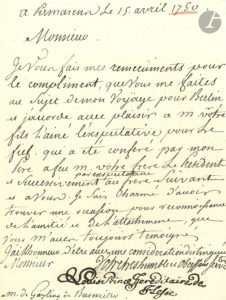 a Pirmasens Le 15. avril 1750
Monsieur
Je Vous fais mes remerciments pour
le compliment, que Vous me faites
au Sujet de mon Voyage pour Berlin
et avec plaisir a m votre
fils l'ainé l'expectative, pour Le
fief, que a eté conferé par mon
Pere a feu m. votre frere Le President
et Successivement au frere Suivant
a Vous. Je Suis charmé d'avoir
trouver une occasion pour reconnoitre
de l'amitié et de l'attachement, que
Vous m'avez toujours temoigné,
J'ai l'honneur d'etre avec une consideration distinguée
Monsieur
Votre tres humble et
Louis Prince hereditaire de
Hesse
a m. de